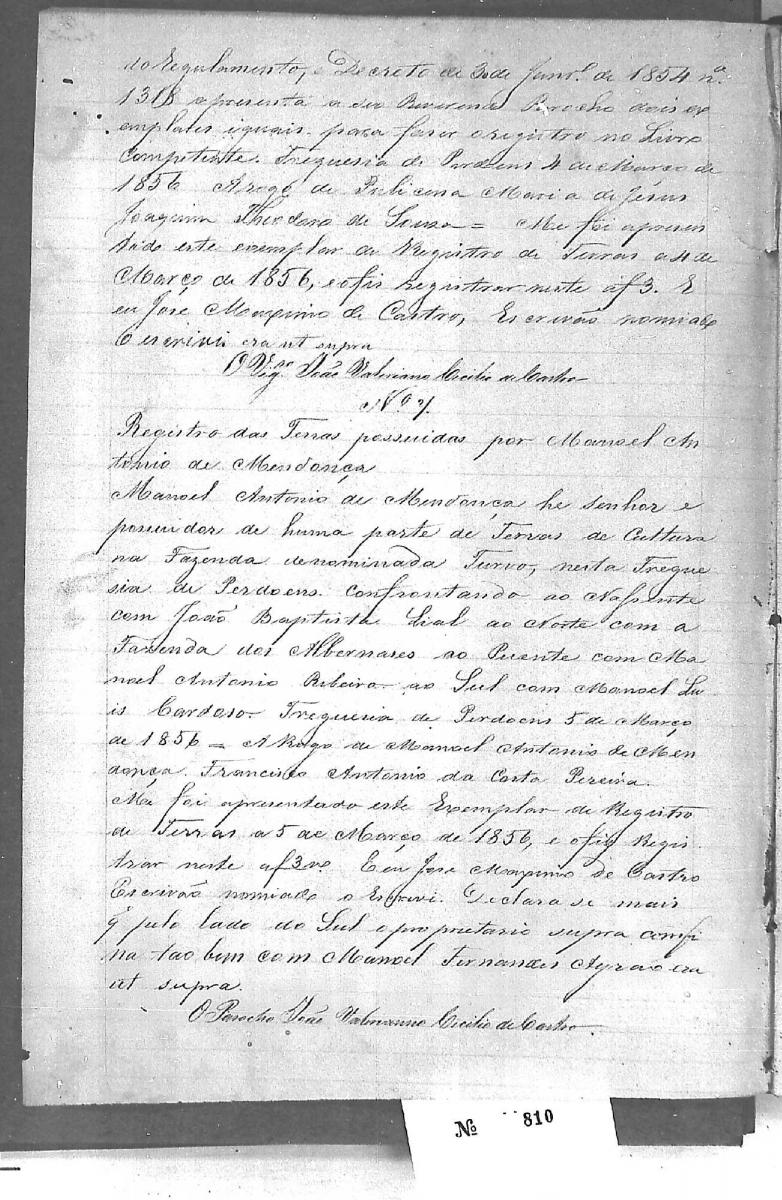 do Regulamento, e Decreto de 30 de Janr.º de 1854 nº
1318 apresenta a seu Reverendo Parocho dois ex
emplares iguais para faser o registro no Livro
Competente. Freguesia de Perdoens 4 de Março de
1856 Arogo de Maria de Jesus
Joaquim Theodoro de Souza = Me foi apresen
tado este exemplar de Registro de Terras a 4 de
Março de 1856, e o fis registrar neste af 3. E
eu José Maximo de Castro, Escrivão nomiado
o escrivi era ut supra
O Vigº João Valeriano Cicilio de Castro
Nº 7.
Registro das Terras possuidas por Manoel An
tonio de Mendonça
Manoel Antonio de Mendonça he senhor e
possuidor de huma parte de Terras de Cultura
na Fazenda denominada Turvo, nesta Fregue
sia de Perdoens. Confrontando ao Nassente
com João Baptista Lial ao Norte com a
Fazenda dos Albernases ao Puente com Ma
noel Antonio Ribeiro ao Sul com Manoel Lu
is Cardoso. Freguesia de Perdoens 5 de Março
de 1856 = A Rogo de Manoel Antonio de Men
donça. Francisco Antonio da Costa Pereira.
Me foi apresentado este Exemplar de Registro
de Terras a 5 de Março de 1856, e o fis Regis
trar neste af 3vº E eu José Maximo de Castro
Escrivão nomiado o Escrivi. Declara se mais
q̃ pelo lado do Sul o proprietario supra confi
na tao bem com Manoel Fernandes Ayrão era
ut supra.
O Parocho João Valeriano Cicilio de Castro
Nº 810